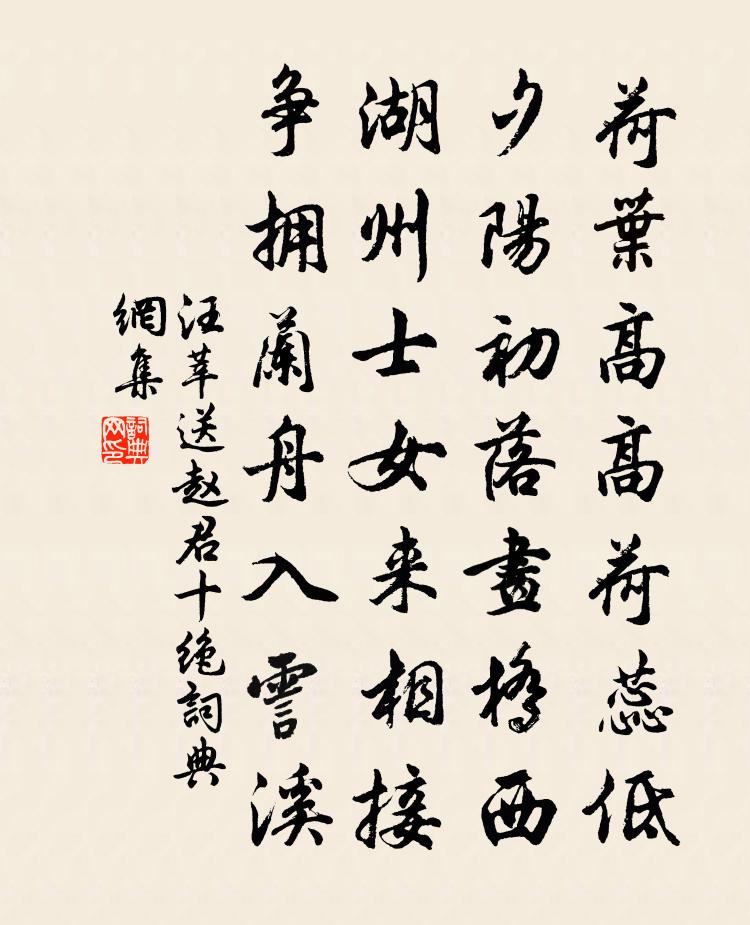 荷葉高高荷蕊低
夕陽初落畫橋西
湖州士女来相接
争拥蘭舟入霅溪
汪莘送赵君十绝詞典
網集
詞典网印